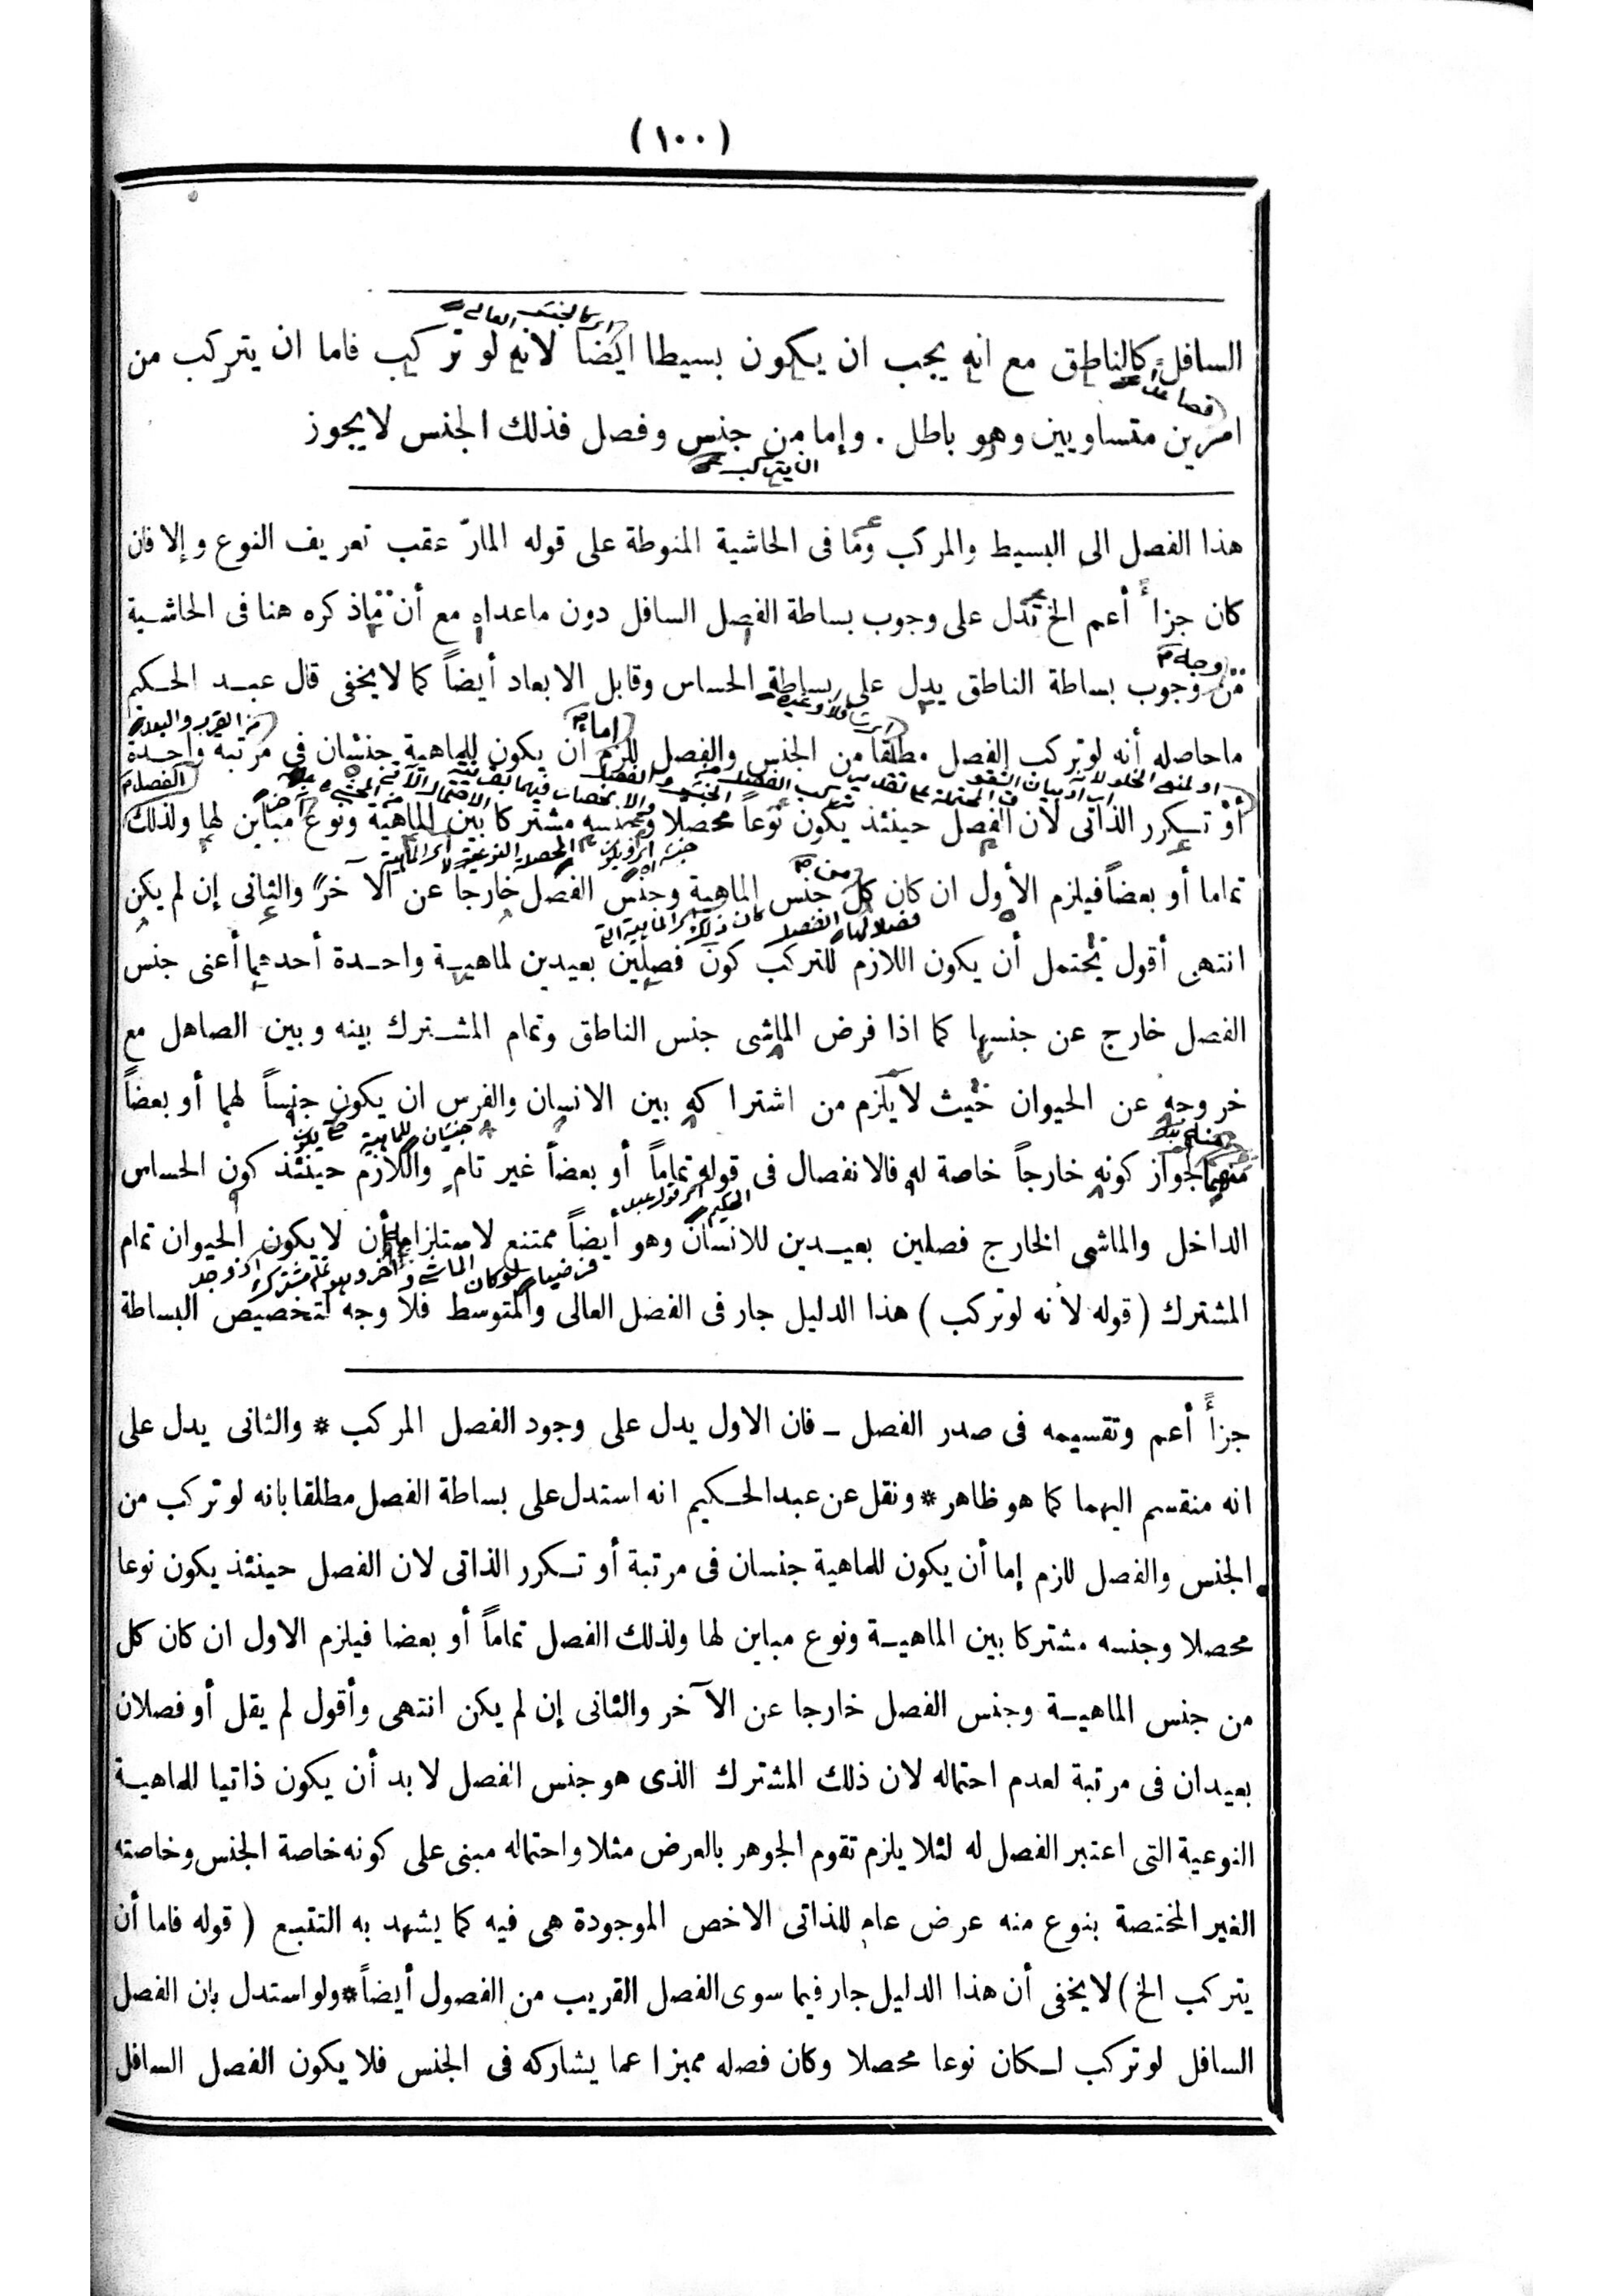 (١٠٠)
السافل كالناطق مع انه يجب ان يكون بسيطا ايضا لانه لو تركب فاما ان يتركب من
امرين متساويين وهو باطل . وإما من جنس وفصل فذلك الجنس لا يجوز
هذا الفصل الى البسيط والمركب وما فى الحاشية المنوطة على قوله المارّ عقب تعريف النوع وإلا فان
كان جزأ أعم الخ تدل على وجوب بساطة الفصل السافل دون ماعداه مع أن ماذكره هنا فى الحاشية
من وجوب بساطة الناطق يدل على بساطة الحساس وقابل الابعاد أيضاً كما لايخفى قال عبد الحكيم
ماحاصله أنه لوتركب الفصل مطلقا من الجنس والفصل للزم أن يكون للماهية جنسان في مرتبة واحدة
أو تكرر الذاتى لان الفصل حينئذ يكون نوعاً محصلا وجنسه مشتركا بين الماهية ونوع مباين لها ولذلك
تماما أو بعضاً فيلزم الأول ان كان كل جنس الماهية وجنس الفصل خارجاً عن الآخر والثانى إن لم يكن
انتهى أقول يحتمل أن يكون اللازم للتركب كون فصلين بعيدين لماهية واحدة أحدهما أعنى جنس
الفصل خارج عن جنسها كما اذا فرض الماشى جنس الناطق وتمام المشترك بينه وبين الصاهل مع
خروجه عن الحيوان حيث لا يلزم من اشتراكه بين الانسان والفرس ان يكون جنساً لهما أو بعضاً
منهما لجواز كونه خارجاً خاصة له فالانفصال فى قوله تماماً أو بعضاً غير تام واللازم حينئذ كون الحساس
الداخل والماشى الخارج فصلين بعيدين للانسان وهو أيضاً ممتنع لاستلزامه أن لا يكون الحيوان تمام
المشترك (قوله لانه لوتركب) هذا الدليل جار فى الفصل العالى والمتوسط فلا وجه لتخصيص البساطة
جزأً أعم وتقسيمه فى صدر الفصل ــ فان الاول يدل على وجود الفصل المركب * والثانى يدل على
انه منقسم اليهما كما هو ظاهر * ونقل عن عبدالحكيم انه استدل على بساطة الفصل مطلقا بانه لو تركب من
الجنس والفصل للزم إما أن يكون للماهية جنسان فى مرتبة أو تكرر الذاتى لان الفصل حينئذ يكون نوعا
محصلا وجنسه مشتركا بين الماهية ونوع مباين لها ولذلك الفصل تماماً أو بعضا فيلزم الاول ان كان كل
من جنس الماهية وجنس الفصل خارجا عن الآخر والثانى إن لم يكن انتهى وأقول لم يقل أو فصلان
بعيدان فى مرتبة لعدم احتماله لان ذلك المشترك الذى هو جنس الفصل لابد أن يكون ذاتيا للماهية
النوعية التى اعتبر الفصل له لئلا يلزم تقوم الجوهر بالعرض مثلا واحتماله مبنى على كونه خاصة الجنس وخاصته
الغير المختصة بنوع منه عرض عام للذاتى الاخص الموجودة هى فيه كما يشهد به التتبع ( قوله فاما أن
يتركب الخ) لايخفى أن هذا الدليل جار فيما سوى الفصل القريب من الفصول أيضاً * ولو استدل بان الفصل
السافل لوتركب لكان نوعا محصلا وكان فصله مميزا عما يشاركه فى الجنس فلا يكون الفصل السافل